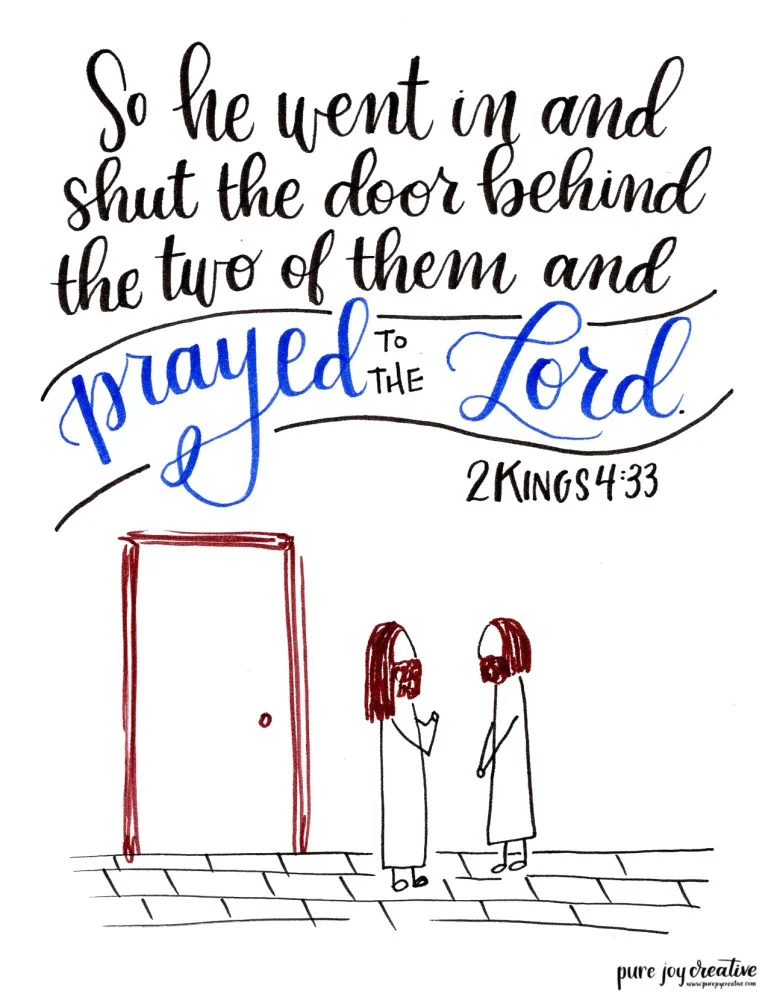 So he went in and
shut the door behind
the two of them and
prayed TO THE Lord.
2 KINGS 4:33
pure joy creative
www.purejoycreative.com